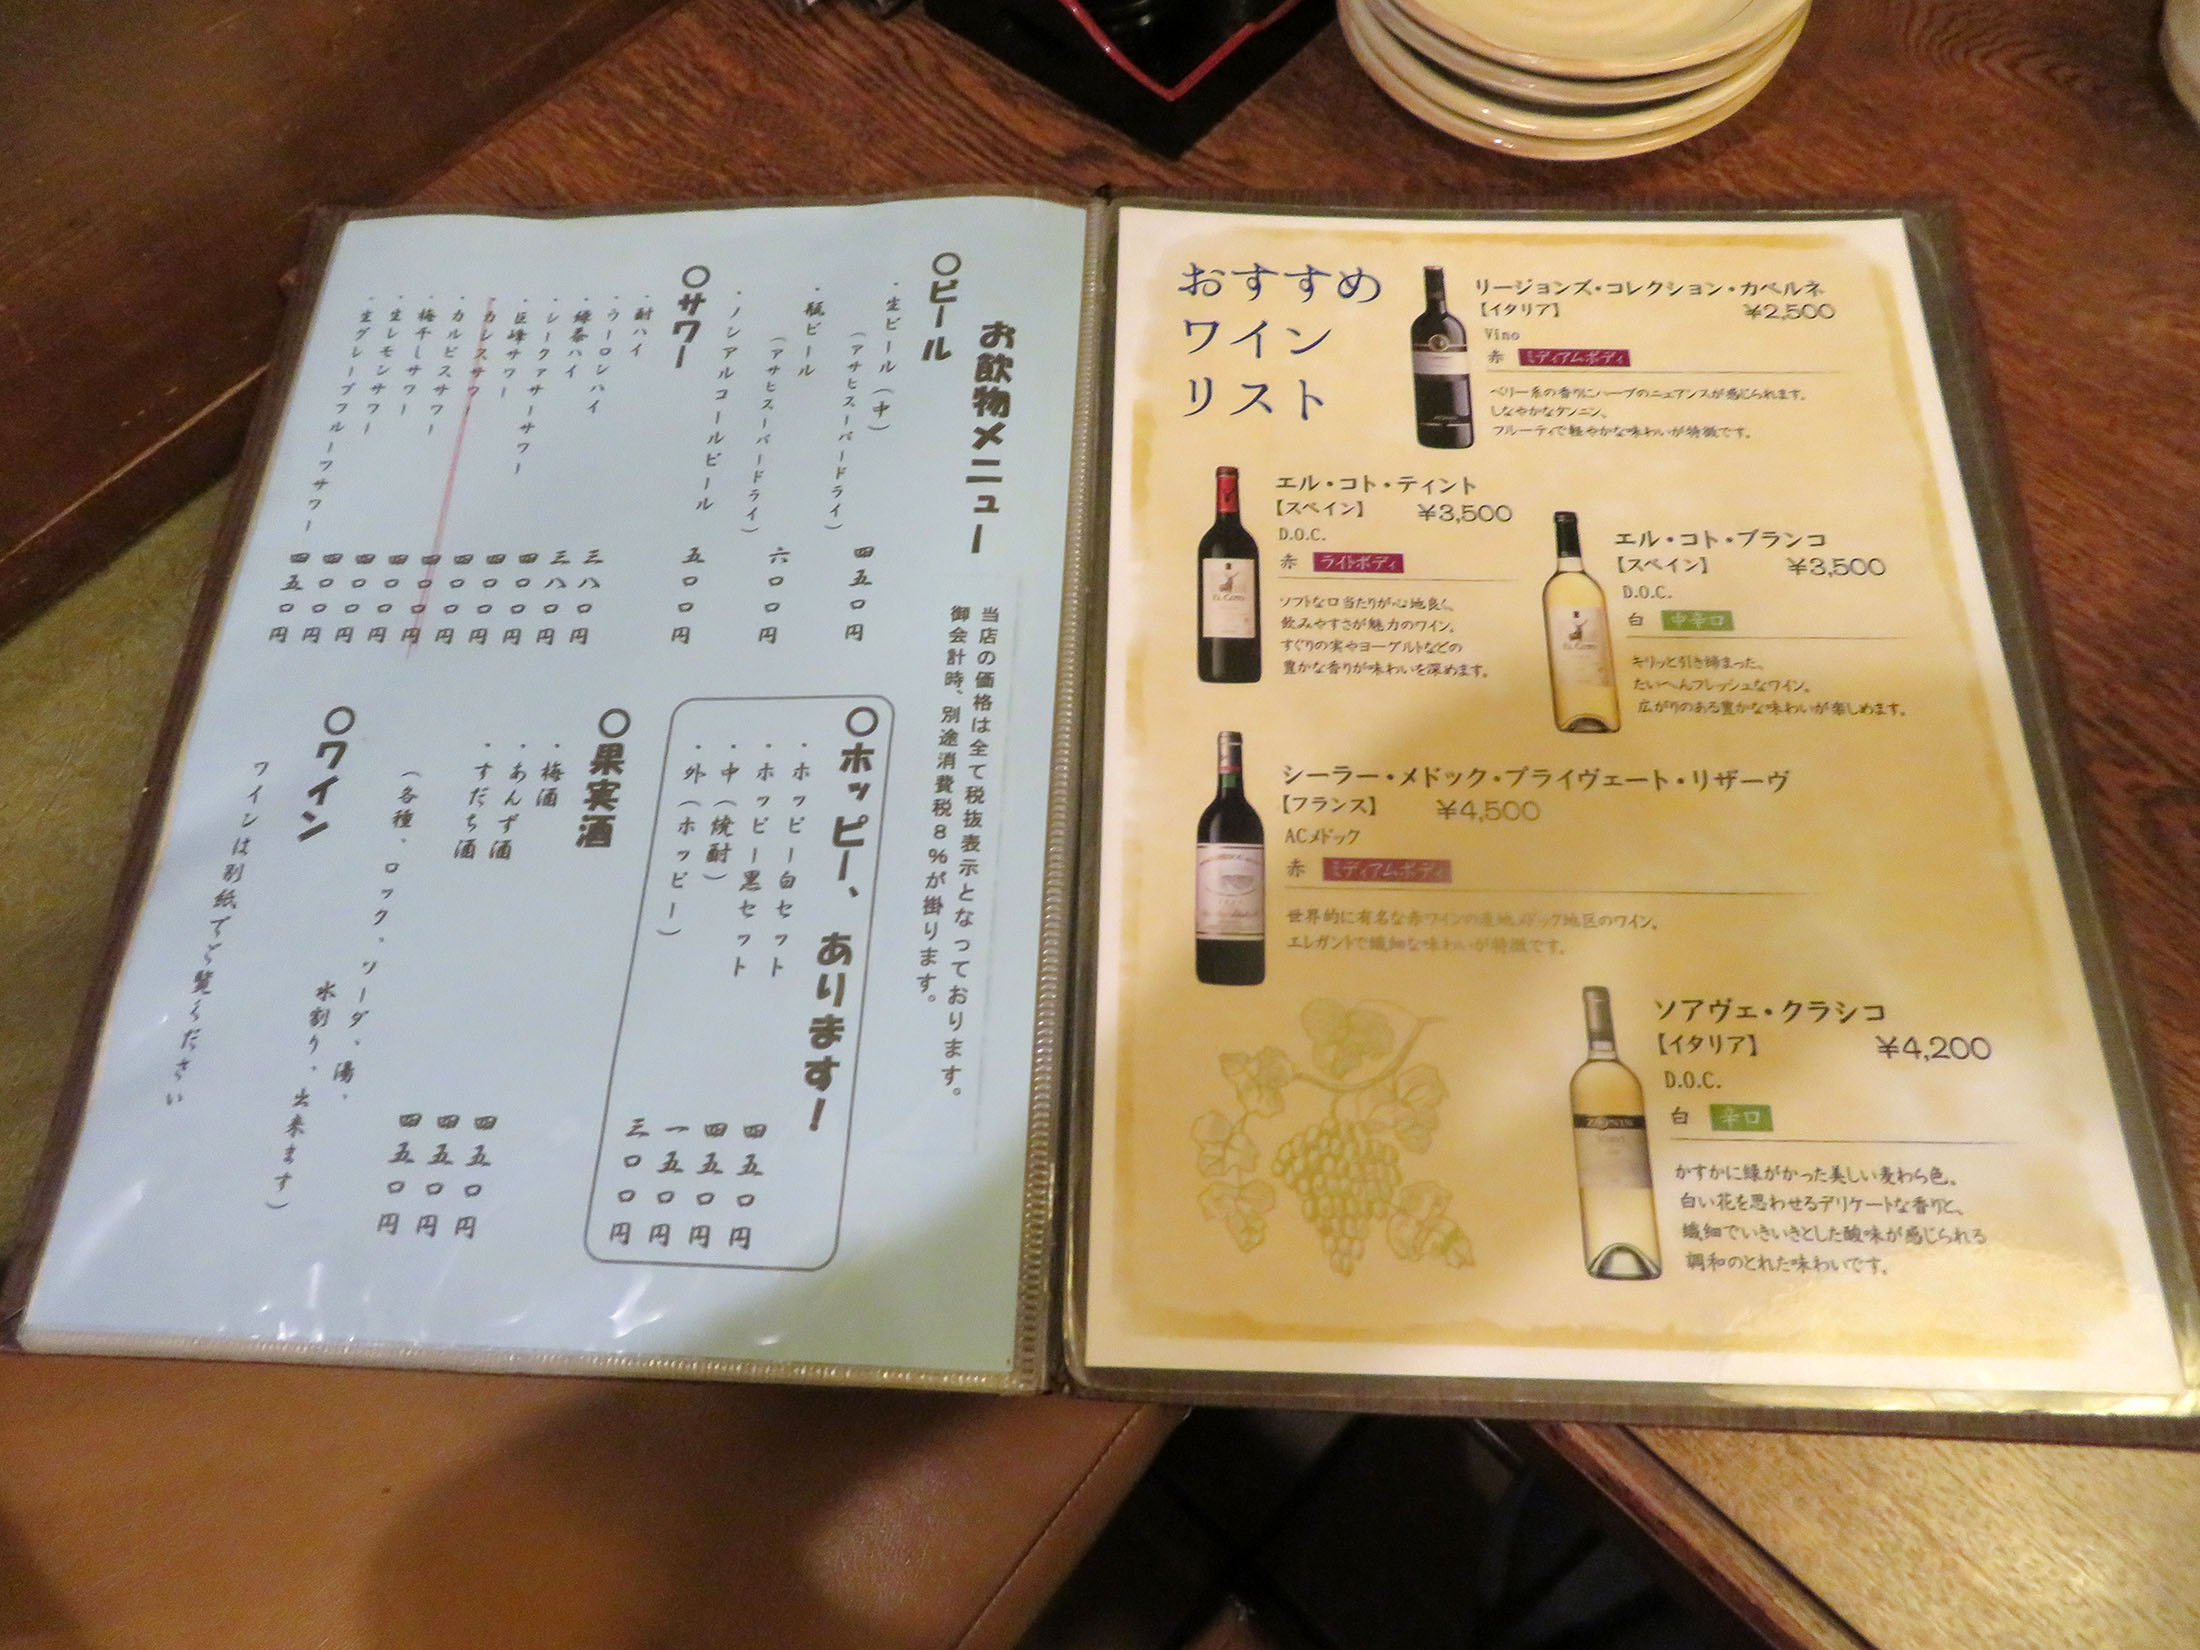 お飲物メニュー
当店の価格は全て税抜表示となっております。
御会計時、別途消費税8%が掛ります。
〇ビール
・生ビール(中) 四五〇円
(アサヒスーパードライ)
・瓶ビール 六〇〇円
(アサヒスーパードライ)
・ノンアルコールビール 五〇〇円
〇サワー
・酎ハイ 三八〇円
・ウーロンハイ 三八〇円
・緑茶ハイ 四〇〇円
・シークァサーサワー 四〇〇円
・巨峰サワー 四〇〇円
・カシスサワー 四〇〇円
・カルピスサワー 四〇〇円
・梅干しサワー 四〇〇円
・生レモンサワー 四〇〇円
・生グレープフルーツサワー 四五〇円
〇ホッピー、あります!
・ホッピー白セット 四五〇円
・ホッピー黒セット 四五〇円
・中(焼酎) 一五〇円
・外(ホッピー) 三〇〇円
〇果実酒
・梅酒 四五〇円
・あんず酒 四五〇円
・すだち酒 四五〇円
(各種、ロック、ソーダ、湯、
水割り、出来ます)
〇ワイン
ワインは別紙でご覧ください
おすすめ
ワイン
リスト
リージョンズ・コレクション・カベルネ
【イタリア】 ¥2,500
Vino
赤 ミディアムボディ
ベリー系の香りにハーブのニュアンスが感じられます。
しなやかなタンニン、
フルーティで軽やかな味わいが特徴です。
エル・コト・ティント
【スペイン】 ¥3,500
D.O.C.
赤 ライトボディ
ソフトな口当たりが心地良く、
飲みやすさが魅力のワイン。
すぐりの実やヨーグルトなどの
豊かな香りが味わいを深めます。
エル・コト・ブランコ
【スペイン】 ¥3,500
D.O.C.
白 中辛口
キリッと引き締まった、
たいへんフレッシュなワイン。
広がりのある豊かな味わいが楽しめます。
シーラー・メドック・プライヴェート・リザーヴ
【フランス】 ¥4,500
ACメドック
赤 ミディアムボディ
世界的に有名な赤ワインの産地メドック地区のワイン。
エレガントで繊細な味わいが特徴です。
ソアヴェ・クラシコ
【イタリア】 ¥4,200
D.O.C.
白 辛口
かすかに緑がかった美しい麦わら色。
白い花を思わせるデリケートな香りと、
繊細でいきいきとした酸味が感じられる
調和のとれた味わいです。
EL COTO
EL COTO
ZONIN